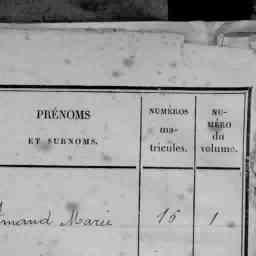 PRÉNOMS
ET SURNOMS.
NUMÉROS
ma-
tricules.
NU-
MÉRO
du
volume.
Marie 15 1